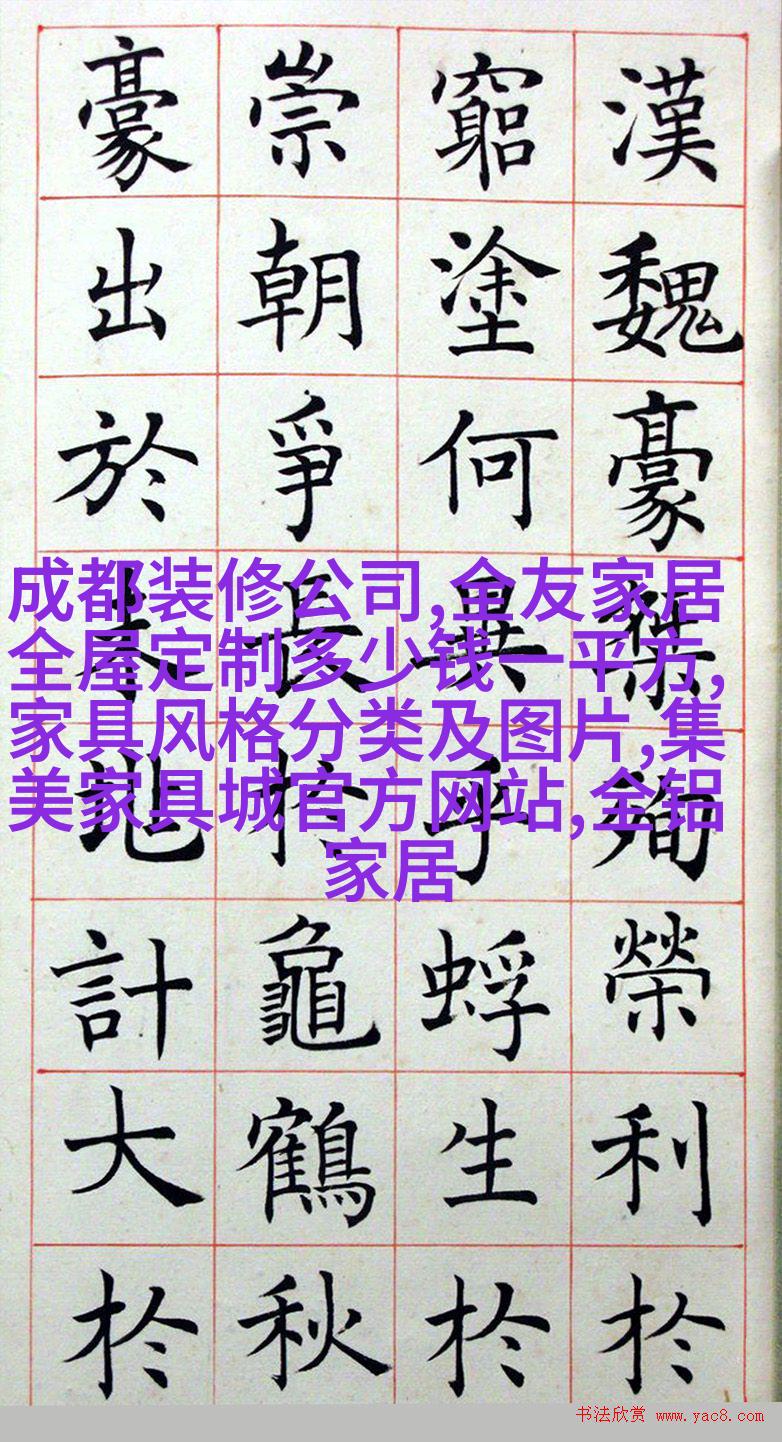 漢魏豪桀殉榮利於
窮塗何異乎蜉生於
崇朝爭長於龜鶴秋
豪出於計大於
成都装修公司,全友家居
全屋定制多少钱一平方,
家具风格分类及图片,集
美家具城官方网站,全铝
家居
书法欣赏 www.yac8.com